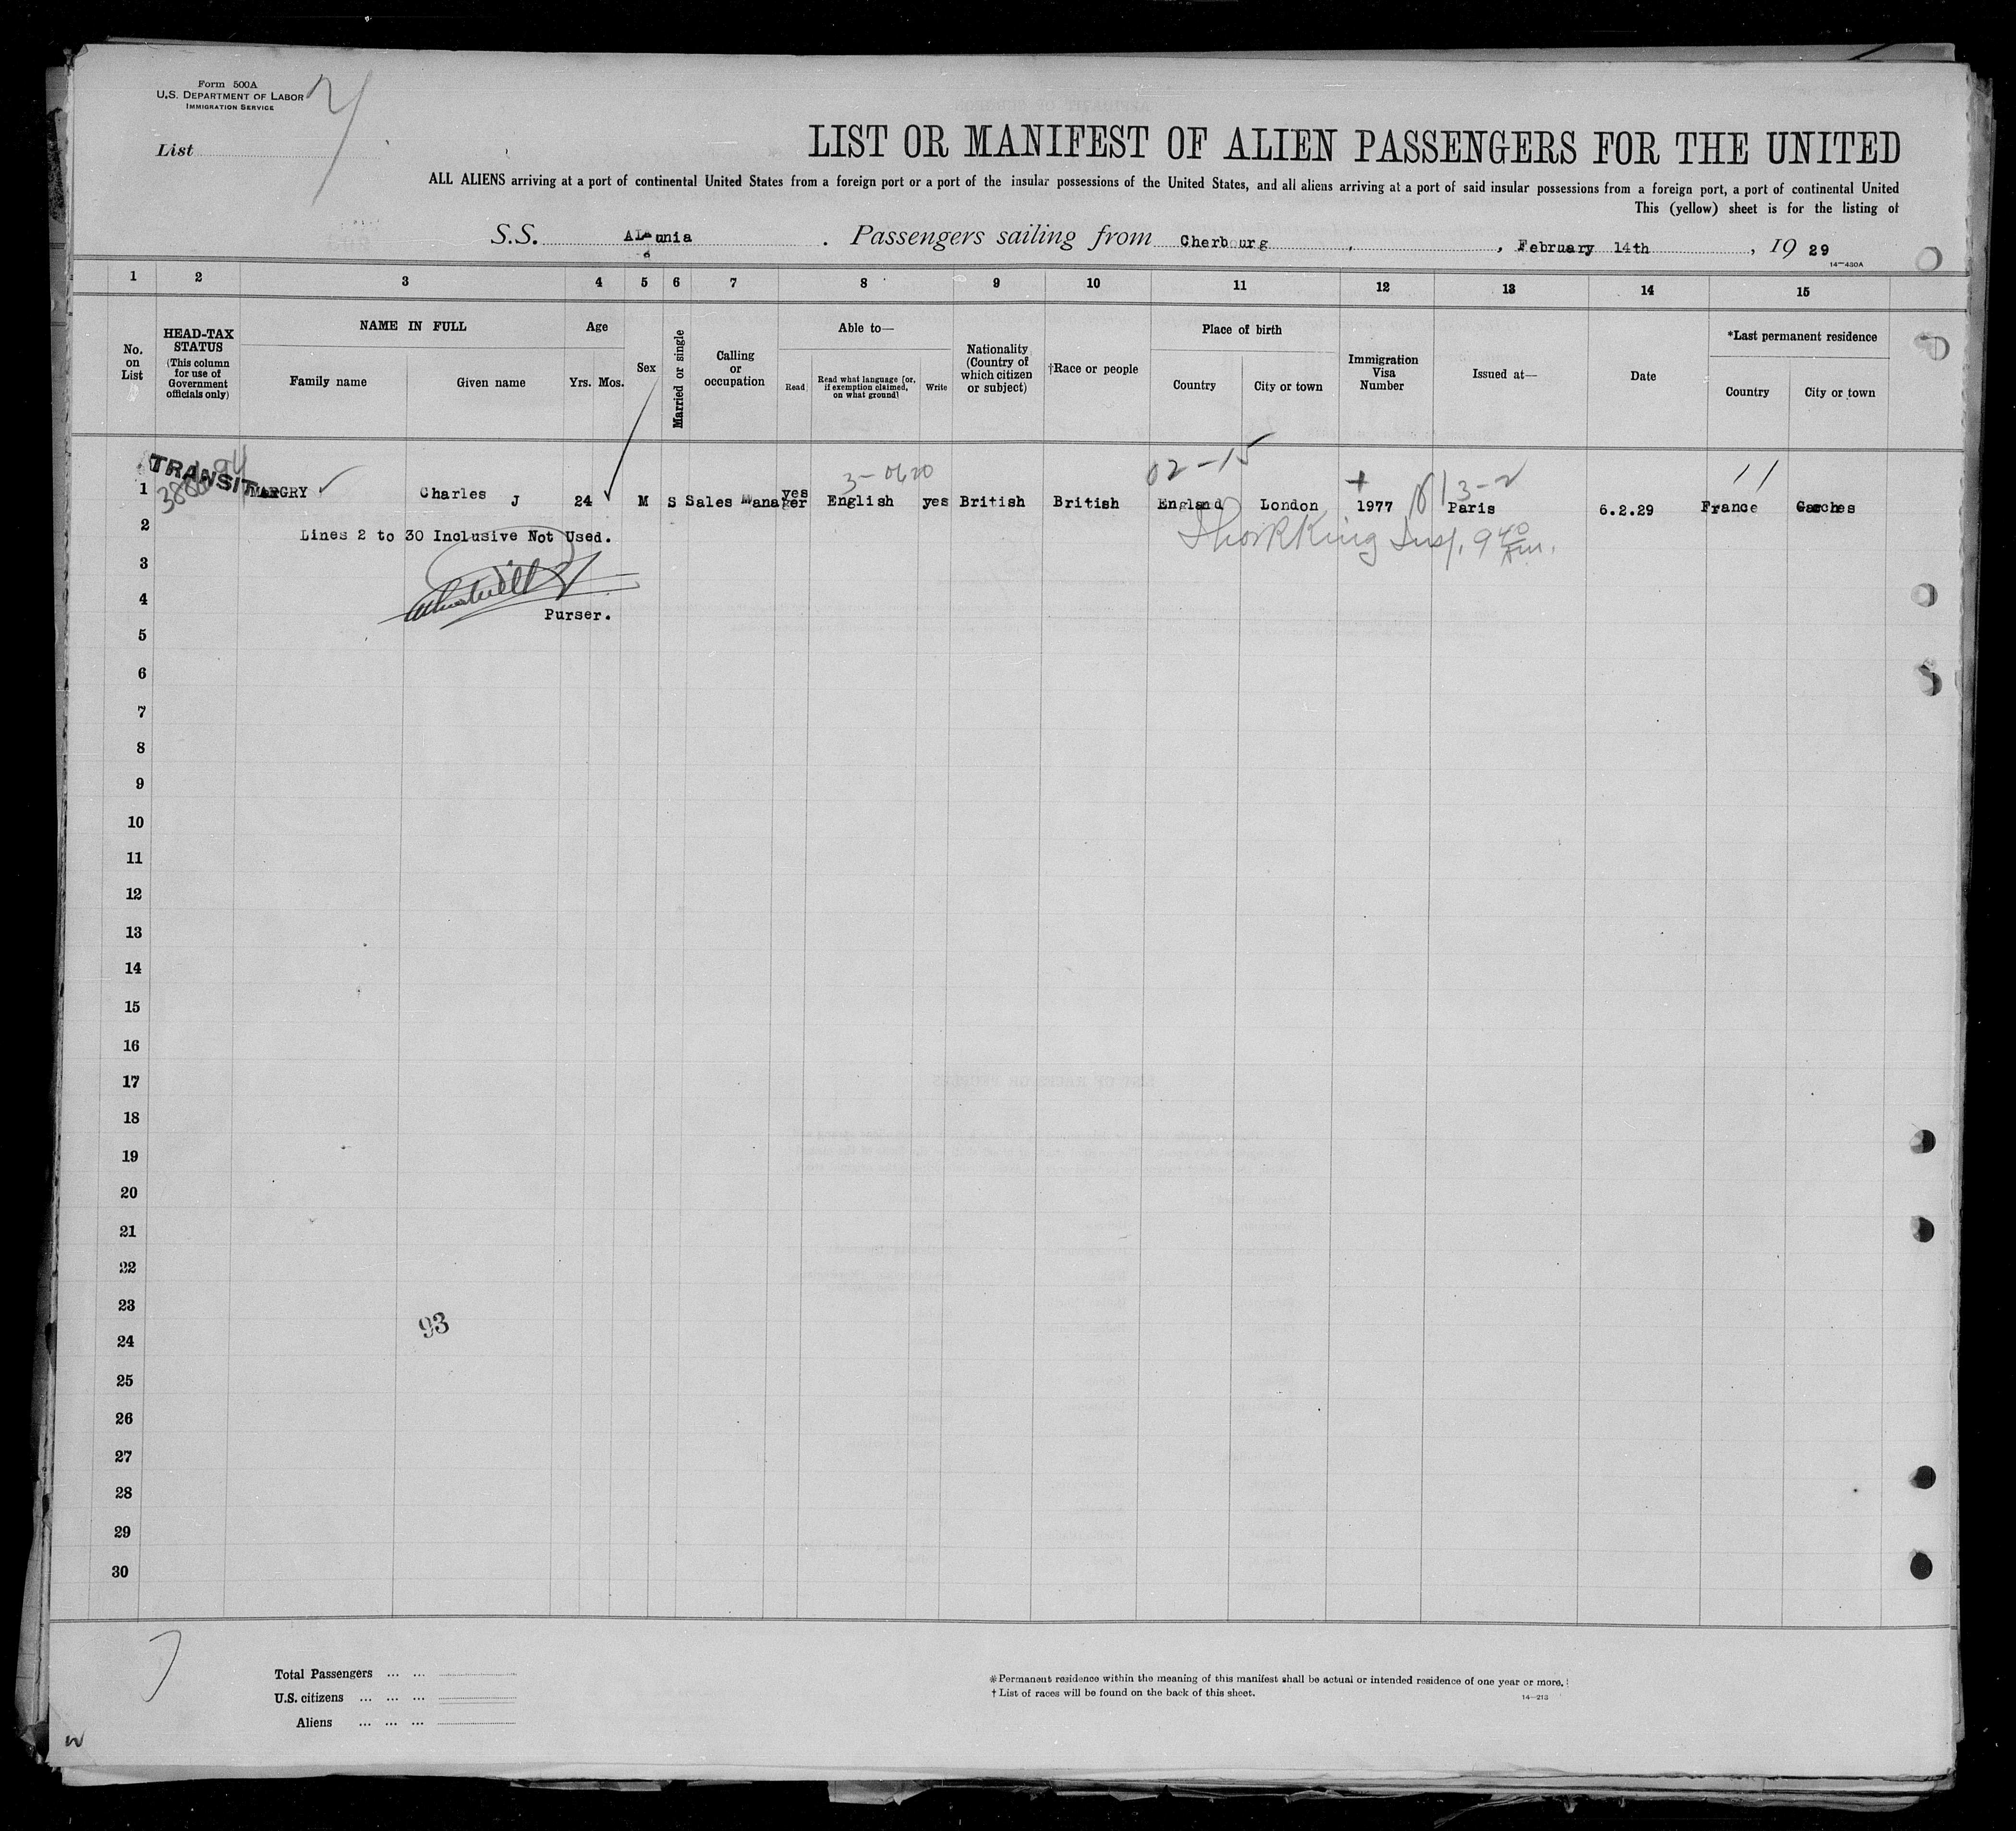 Form 500A
U.S. DEPARTMENT OF LABOR
IMMIGRATION SERVICE
List
LIST OR MANIFEST OF ALIEN PASSENGERS FOR THE UNITED
ALL ALIENS arriving at a port of continental United States from a foreign port or a port of the insular possessions of the United States, and all aliens arriving at a port of said insular possessions from a foreign port, a port of continental United
This (yellow) sheet is for the listing of
S.S. Passengers sailing from Cherbourg, February 14th, 19 29
14—430A
1 2 3 4 5 6 7 8 9 10 11 12 13 14 15
No. on List
HEAD-TAX STATUS
(This column for use of Government officials only)
NAME IN FULL
Family name
Given name
Age
Yrs. Mos.
Sex
Married or single
Calling or occupation
Able to—
Read
Read what language [or, if exemption claimed, on what ground]
Write
Nationality (Country of which citizen or subject)
†Race or people
Place of birth
Country
City or town
Immigration Visa Number
Issued at—
Date
*Last permanent residence
Country
City or town
3-0620 02-15 3-2 11
TRANSIT
1 MARGRY Charles J 24 M S Sales Manager yes English yes British British England London 1977 Paris 6.2.29 France Garches
2 Lines 2 to 30 Inclusive Not Used.
King Insp. 9 40 Am.
3
4 Purser.
5
6
7
8
9
10
11
12
13
14
15
16
17
18
19
20
21
22
23
93
24
25
26
27
28
29
30
Total Passengers ... ...
U.S. citizens ... ... ...
Aliens ... ... ...
*Permanent residence within the meaning of this manifest shall be actual or intended residence of one year or more.
† List of races will be found on the back of this sheet.
14—213